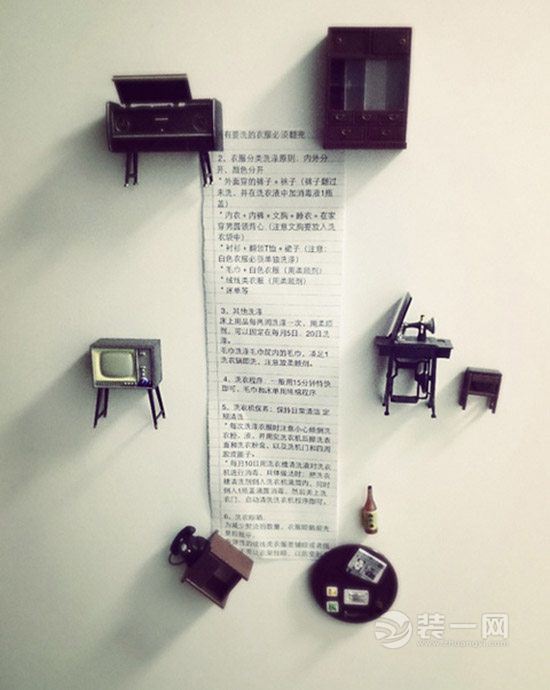 有要洗的衣服必须翻兜
2、衣服分类洗涤原则：内外分
开、颜色分开
*外面穿的裤子+袜子（裤子翻过
来洗，并在洗衣液中加消毒液1瓶
盖）
*内衣+内裤+文胸+睡衣+在家
穿男圆领背心（注意文胸要放入洗
衣袋中）
*衬衫+翻领T恤+裙子（注意：
白色衣服必须单独洗涤）
*毛巾+白色衣服（用柔顺剂）
*绒线类衣服（用柔顺剂）
*床单等
3、其他洗涤
床上用品每两周洗涤一次，用柔顺
剂，可以固定在每月5日、20日洗
涤。
毛巾洗涤毛巾筐内的毛巾，凑足1
洗衣锅即洗，注意放柔顺剂。
4、洗衣程序：一般用15分钟特快
即可，毛巾和床单用纯棉程序
5、洗衣机保养：保持日常清洁 定
期清洗
*每次洗涤衣服时注意小心倾倒洗
衣粉、液，并用完洗衣机后擦洗表
面和洗衣粉盒、以及洗机门和四周
胶皮圈子。
*每月10日用洗衣槽清洗液对洗衣
机进行消毒，具体做法时：把洗衣
槽清洗剂倒入洗衣机滚筒内，同时
倒入1瓶盖滴露消毒，然后关上洗
衣门，启动清洗洗衣机程序即可。
6、洗衣晾晒
为减少熨烫的数量，衣服晾晒前先
装一网
www.zhuangyi.com